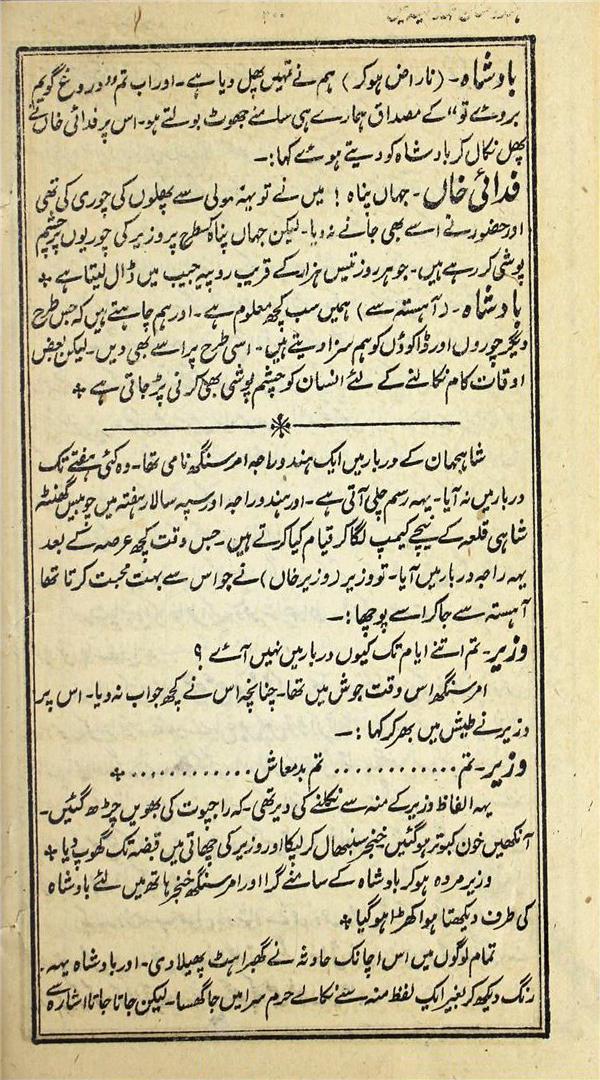 بادشاہ۔ (ناراض ہوکر) ہم نے تمہیں پھل دیا ہے۔ اور اب تم ”دروغ گویم
بروئے تو“ کے مصداق ہمارے ہی سامنے جھوٹ بولتے ہو۔ اس پر فدائی خاں نے
پھل نکال کر بادشاہ کو دیتے ہوئے کہا:۔
فدائی خاں۔ جہاں پناہ! میں نے تو یہ معمولی سے پھلوں کی چوری کی تھی
اور حضور نے اسے بھی جانے نہ دیا۔ لیکن جہاں پناہ کسطرح پر وزیر کی چوریوں پر چشم
پوشی کر رہے ہیں۔ جو ہر روز تیس ہزار کے قریب روپیہ جیب میں ڈال لیتا ہے ٭
بادشاہ۔ (آہستہ سے) ہمیں سب کچھ معلوم ہے۔ اور ہم چاہتے ہیں کہ جس طرح
دیگر چوروں اور ڈاکوؤں کو ہم سزا دیتے ہیں۔ اسی طرح پر اسے بھی دیں۔ لیکن بعض
اوقات کام نکالنے کے لئے انسان کو چشم پوشی بھی کرنی پڑ جاتی ہے ٭
شاہجہان کے دربار میں ایک ہندو راجہ امر سنگھ نامی تھا۔ وہ کئی ہفتے تک
دربار میں نہ آیا۔ یہہ رسم چلی آتی ہے۔ اور ہندو راجہ اور سپہ سالار ہفتہ میں چوبیس گھنٹہ
شاہی قلعہ کے نیچے کیمپ لگا کر قیام کیا کرتے ہیں۔ جس وقت کچھ عرصہ کے بعد
یہہ راجہ دربار میں آیا۔ تو وزیر (وزیر خاں) نے جو اس سے بہت محبت کرتا تھا
آہستہ سے جا کر اسے پوچھا:۔
وزیر۔ تم اتنے ایام تک کیوں دربار میں نہیں آئے؟
امر سنگھ اس وقت جوش میں تھا۔ چنانچہ اس نے کچھ جواب نہ دیا۔ اس پر
وزیر نے طیش میں بھر کر کہا:۔
وزیر۔ تم............ تم بدمعاش............ ٭
یہہ الفاظ وزیر کے منہ سے نکلنے کی دیر تھی۔ کہ راجپوت کی بھویں چڑھ گئیں۔
آنکھیں خون کبوتر ہو گئیں خنجر سنبھال کر لپکا اور وزیر کی چھاتی میں قبضہ تک گھوپ دیا ٭
وزیر مردہ ہو کر بادشاہ کے سامنے گرا اور امر سنگھ خنجر ہاتھ میں لئے بادشاہ
کی طرف دیکھتا ہوا کھڑا ہو گیا ٭
تمام لوگوں میں اس اچانک حادثہ نے گھبراہٹ پھیلا دی۔ اور بادشاہ یہہ
رنگ دیکھ کر بغیر ایک لفظ منہ سے نکالے حرم سرا میں جا گھسا۔ لیکن جاتا جاتا اشارے